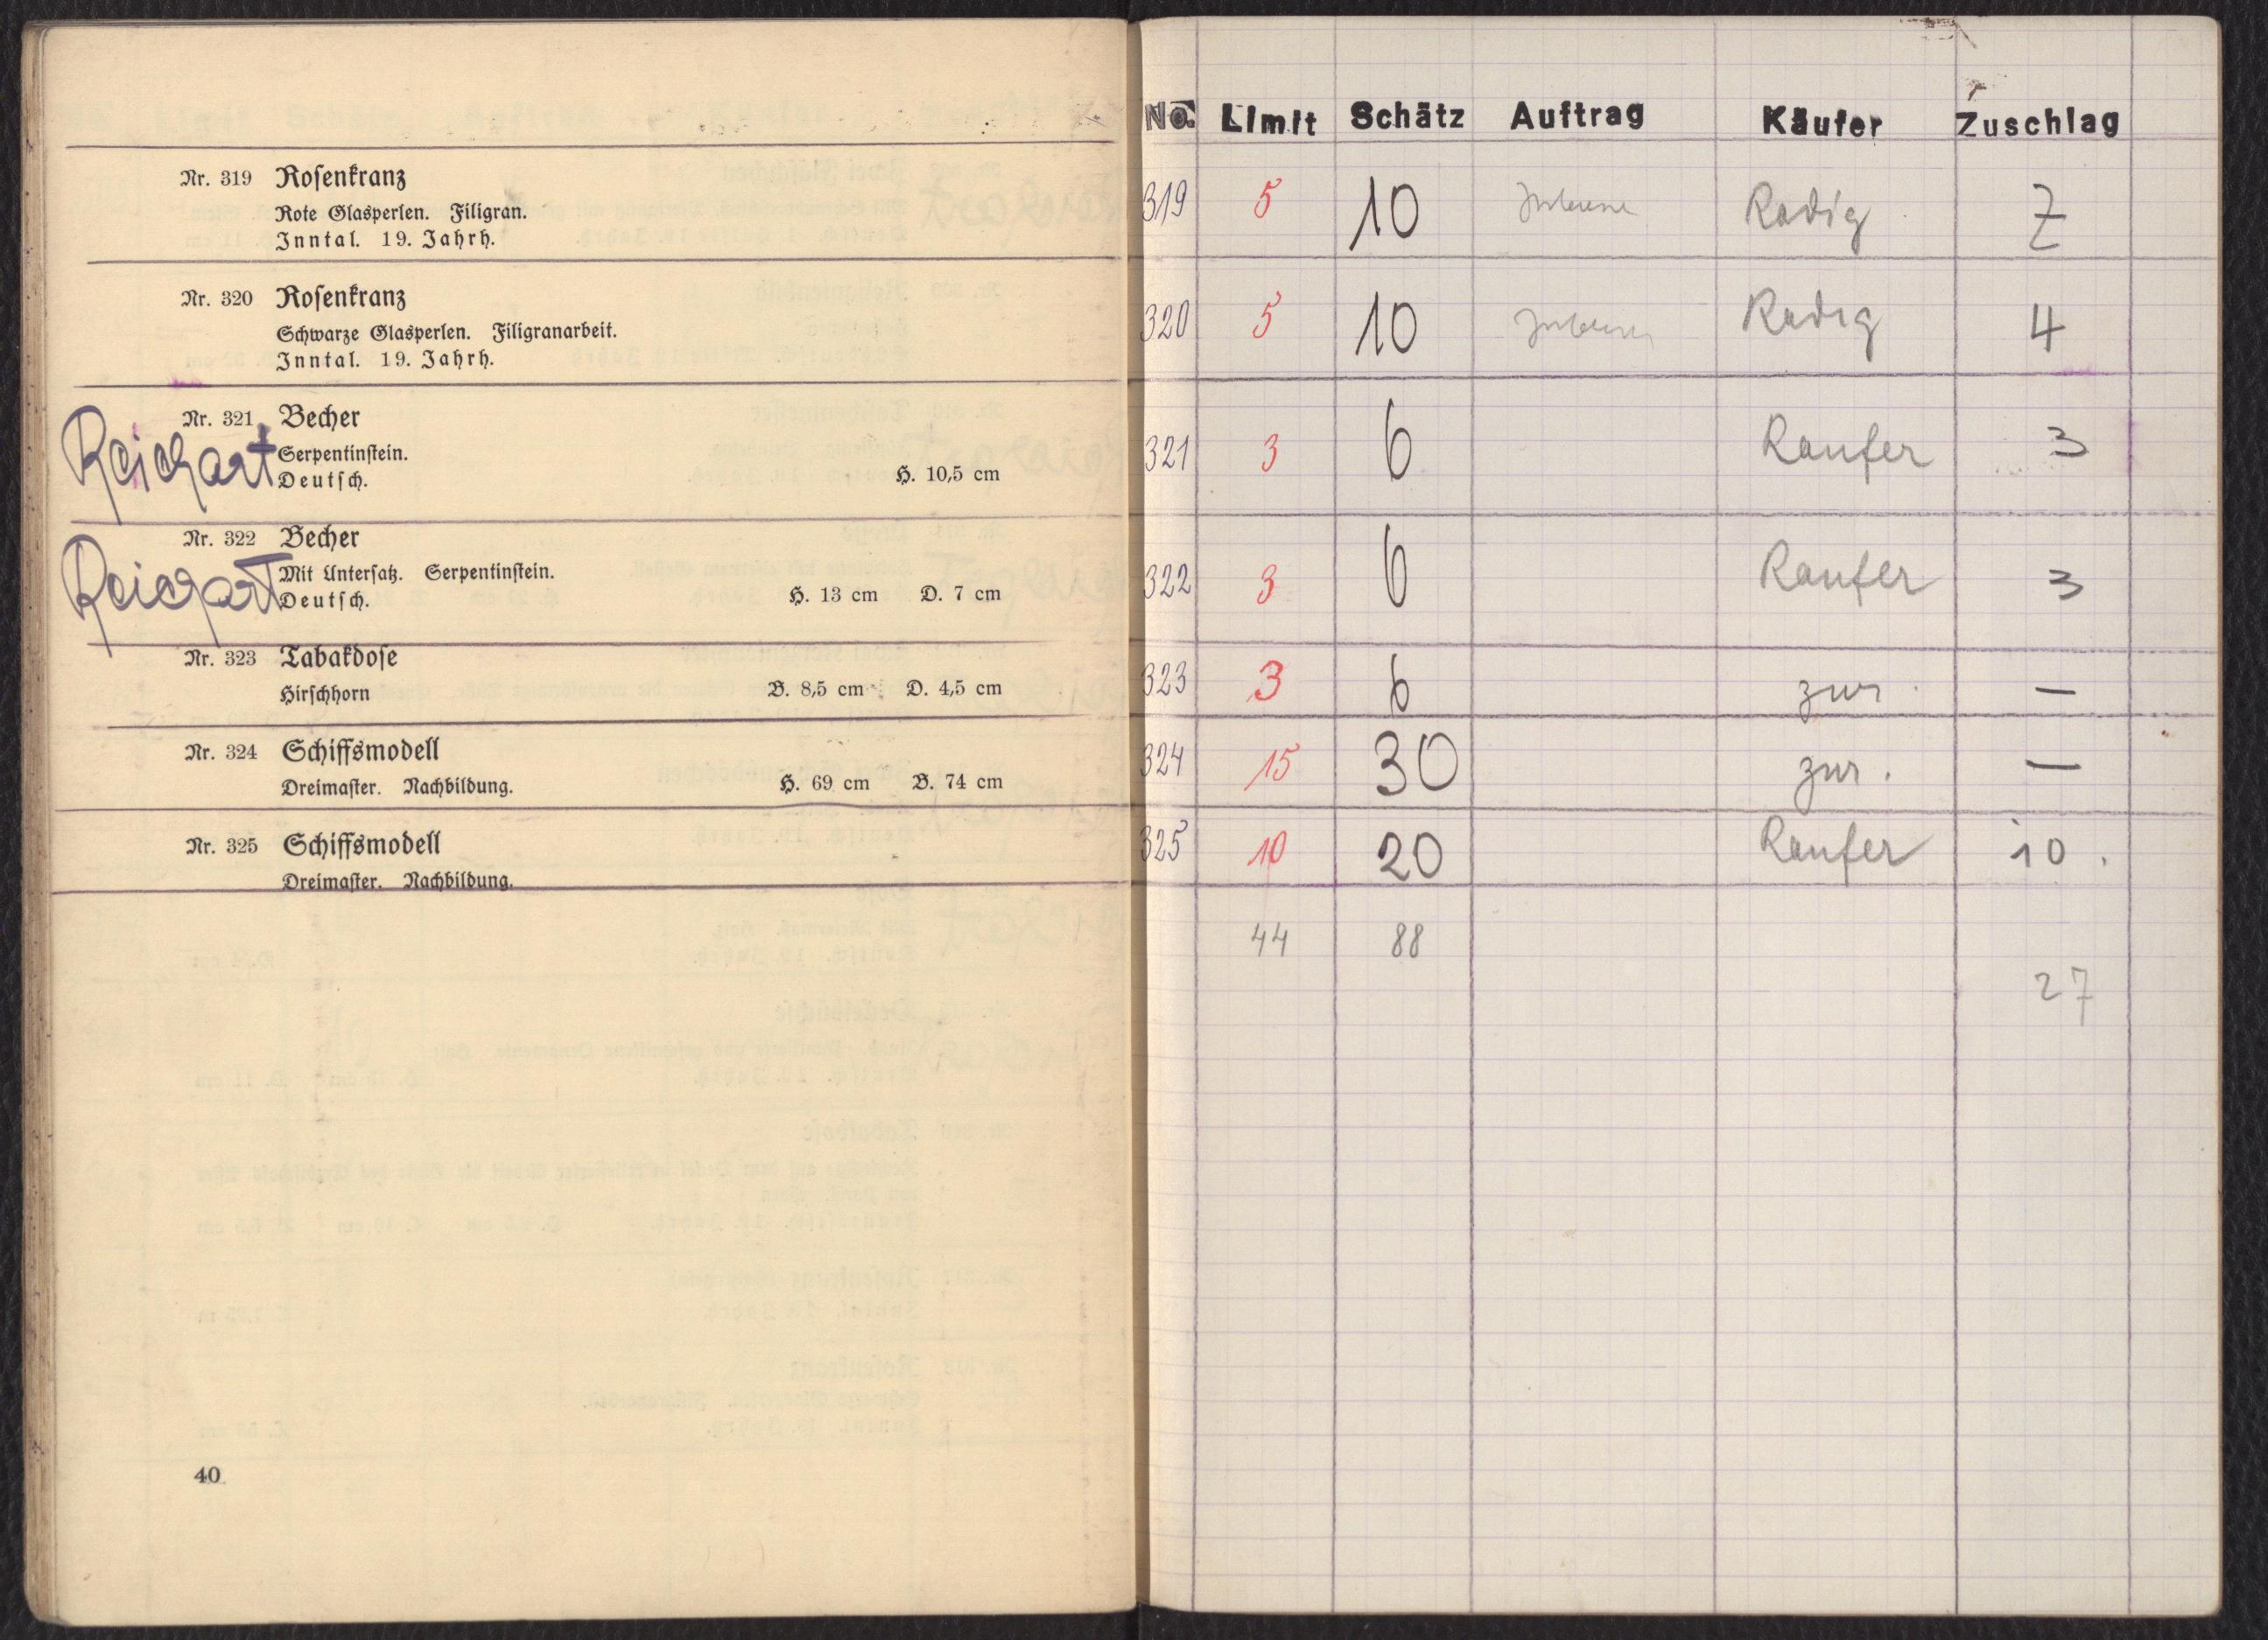 Nr. 319 Rosenkranz
Rote Glasperlen. Filigran.
Inntal. 19. Jahrh.
Nr. 320 Rosenkranz
Schwarze Glasperlen. Filigranarbeit.
Inntal. 19. Jahrh.
Reichart
Nr. 321 Becher
Serpentinstein.
Deutsch. H. 10,5 cm
Reichart
Nr. 322 Becher
Mit Untersatz. Serpentinstein.
Deutsch. H. 13 cm D. 7 cm
Nr. 323 Tabakdose
Hirschhorn B. 8,5 cm D. 4,5 cm
Nr. 324 Schiffsmodell
Dreimaster. Nachbildung. H. 69 cm B. 74 cm
Nr. 325 Schiffsmodell
Dreimaster. Nachbildung.
40
No. Limit Schätz Auftrag Käufer Zuschlag
319 5 10 Radig 7
320 5 10 Radig 4
321 3 6 Raufer 3
322 3 6 Raufer 3
323 3 6 zur. —
324 15 30 zur. —
325 10 20 Raufer 10.
44 88
27